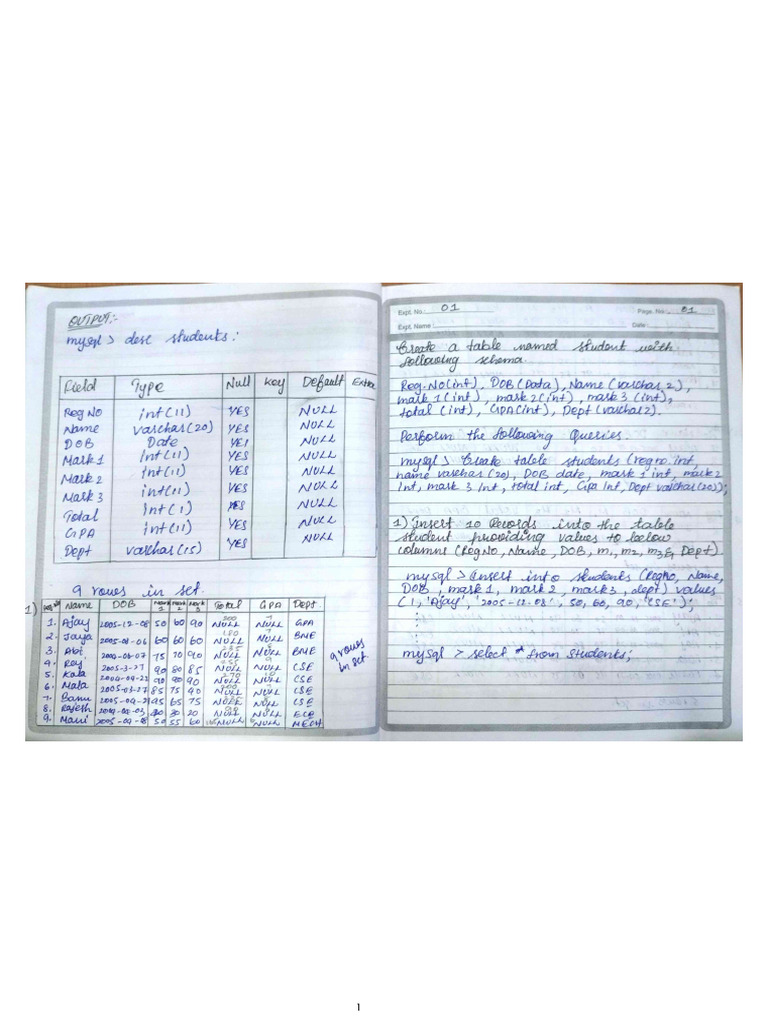 OUTPUT:-
mysql > desc students:
Field Type Null Key Default Extra
Reg No int(11) YES NULL
Name varchar(20) YES NULL
DOB Date YES NULL
Mark 1 Int(11) YES NULL
Mark 2 Int(11) YES NULL
Mark 3 int(11) YES NULL
Total Int(1) YES NULL
GPA int(11) YES NULL
Dept varchar(15)
9 rows in set.
1) Name DOB Mark 1 Mark 2 Mark 3 Total GPA Dept
1. Ajay 2005-12-08 50 60 90 NULL NULL GPA
2. Jaya 60 60 60 NULL NULL BME
3. Abi 75 70 90 NULL NULL BME
4. Roy 2005-3-27 90 80 85 NULL NULL CSE
5. Kala 90 90 90 NULL NULL CSE
6. Mala 2005-03-27 85 75 40 NULL NULL CSE
7. Banu 65 75 NULL CSE
8. Rajesh 20 NULL NULL ECE
9. Mani 50 55 60 NULL NULL MECH
9 rows
in set.
Expt. No.: 01 Page. No.: 01
Expt. Name : Date :
Create a table named student with
following schema.
Reg-No(int), DOB(Data), Name (varchar 2),
mark 1 (int), mark 2 (int), mark 3 (int),
total (int), GPA(int), Dept(varchar2).
Perform the following Queries.
mysql > Create table students (regno int,
name varchar (20), DOB date, mark 1 int, mark2
Int, mark 3 Int, total int, Gpa Int, Dept varchar(20));
1) Insert 10 Records into the table
student providing values to below
columns (RegNo, Name, DOB, m1, m2, m3 & Dept)
mysql > Insert into students (RegNo, Name,
DOB, mark 1, mark 2, mark 3, dept) values
(1, 'Ajay', '2005-12-08', 50, 60, 90, 'CSE');
mysql > select * from students;
1